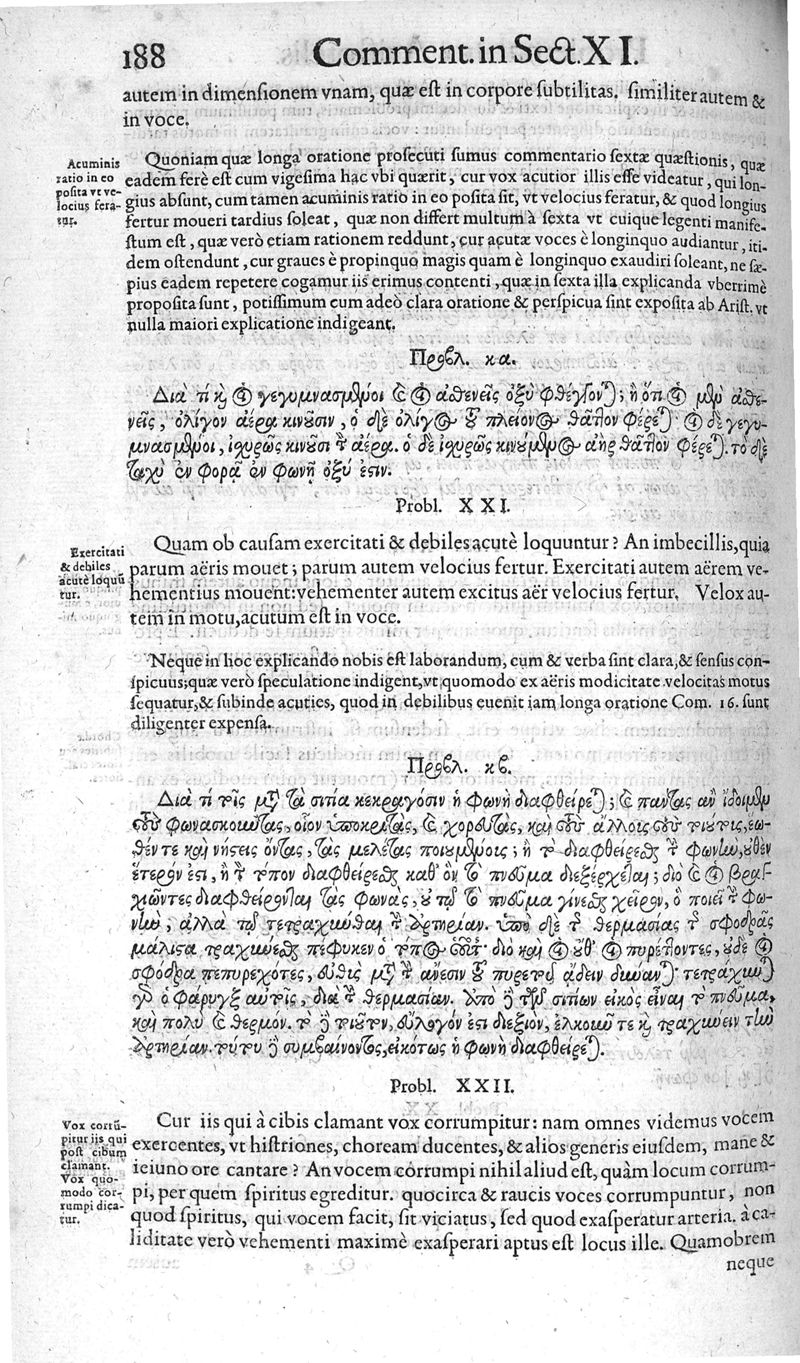 188 Comment. in Sect. XI.
autem in dimensionem vnam, quæ est in corpore subtilitas. similiter autem &
in voce.
Acuminis
ratio in eo
posita vt ve-
locius fera-
tur.
Quoniam quæ longa oratione prosecuti sumus commentario sextæ quæstionis, quæ
eadem ferè est cum vigesima hac vbi quærit, cur vox acutior illis esse videatur, qui lon-
gius absunt, cum tamen acuminis ratio in eo posita sit, vt velocius feratur, & quod longius
fertur moueri tardius soleat, quæ non differt multum à sexta vt cuique legenti manife-
stum est, quæ verò etiam rationem reddunt, cur acutæ voces è longinquo audiantur, iti-
dem ostendunt, cur graues è propinquo magis quam è longinquo exaudiri soleant, ne sæ-
pius eadem repetere cogamur iis erimus contenti, quæ in sexta illa explicanda vberrimè
proposita sunt, potissimum cum adeò clara oratione & perspicua sint exposita ab Arist. vt
nulla maiori explicatione indigeant.
Προβλ. κα.
Διὰ τί καὶ οἱ γεγυμνασμένοι καὶ οἱ ἀσθενεῖς ὀξὺ φθέγγονται; ἢ ὅτι οἱ μὲν ἀσθε-
νεῖς, ὀλίγον ἀέρα κινοῦσιν, ὁ δὲ ὀλίγος τοῦ πλείονος θᾶττον φέρεται. οἱ δὲ γεγυ-
μνασμένοι, ἰσχυρῶς κινοῦσι τὸν ἀέρα. ὁ δὲ ἰσχυρῶς κινούμενος ἀὴρ θᾶττον φέρεται. τὸ δὲ
ταχὺ ἐν φορᾷ ἐν φωνῇ ὀξύ ἐστιν.
Probl. XXI.
Exercitati
& debiles
acutè loquũ
tur.
Quam ob causam exercitati & debiles acutè loquuntur? An imbecillis, quia
parum aëris mouet; parum autem velocius fertur. Exercitati autem aërem ve-
hementius mouent: vehementer autem excitus aër velocius fertur. Velox au-
tem in motu, acutum est in voce.
Neque in hoc explicando nobis est laborandum, cum & verba sint clara, & sensus con-
spicuus; quæ verò speculatione indigent, vt quomodo ex aëris modicitate velocitas motus
sequatur, & subinde acuties, quod in debilibus euenit iam longa oratione Com. 16. sunt
diligenter expensa.
Προβλ. κβ.
Διὰ τί τοῖς μετὰ τὰ σιτία κεκραγόσιν ἡ φωνὴ διαφθείρεται; καὶ πάντας ἂν ἴδοιμεν
τοὺς φωνασκοῦντας, οἷον ὑποκριτὰς, καὶ χορευτὰς, καὶ τοὺς ἄλλους τοὺς τοιούτους, ἕω-
θέν τε καὶ νήστεις ὄντας, τὰς μελέτας ποιουμένοις; ἢ τὸ διαφθείρεσθαι τὴν φωνὴν, οὐθὲν
ἕτερόν ἐστι, ἢ τὸν τόπον διαφθείρεσθαι καθ' ὃν τὸ πνεῦμα διεξέρχεται; διὸ καὶ οἱ βραγ-
χιῶντες διαφθείρονται τὰς φωνὰς, οὐ τῷ τὸ πνεῦμα γίνεσθαι χεῖρον, ὃ ποιεῖ τὴν φω-
νὴν, ἀλλὰ τῷ τετραχῦνθαι τὴν ἀρτηρίαν. ὑπὸ δὲ τῆς θερμασίας τῆς σφοδρᾶς
μάλιστα τραχύνεσθαι πέφυκεν ὁ τόπος οὗτος· διὸ καὶ οἱ οὔθ' οἱ πυρέττοντες, οὐδὲ οἱ
σφόδρα πεπυρεχότες, εὐθὺς μετὰ τὴν ἄνεσιν τοῦ πυρετοῦ ᾄδειν δύνανται· τετράχυνται
γὰρ ὁ φάρυγξ αὐτοῖς, διὰ τὴν θερμασίαν. ἀπὸ δὲ τῶν σιτίων εἰκὸς εἶναι τὸ πνεῦμα,
καὶ πολὺ καὶ θερμόν. τὸ δὲ τοιοῦτον, εὔλογόν ἐστι διεξιὸν, ἑλκοῦν τε καὶ τραχύνειν τὴν
ἀρτηρίαν. τούτου δὲ συμβαίνοντος, εἰκότως ἡ φωνὴ διαφθείρεται.
Probl. XXII.
Vox corrũ-
pitur iis qui
post cibum
clamant.
Vox quo-
modo cor-
rumpi dica-
tur.
Cur iis qui à cibis clamant vox corrumpitur: nam omnes videmus vocem
exercentes, vt histriones, choream ducentes, & alios generis eiusdem, mane &
ieiuno ore cantare? An vocem corrumpi nihil aliud est, quàm locum corrum-
pi, per quem spiritus egreditur. quocirca & raucis voces corrumpuntur, non
quod spiritus, qui vocem facit, sit viciatus, sed quod exasperatur arteria. à ca-
liditate verò vehementi maximè exasperari aptus est locus ille. Quamobrem
neque